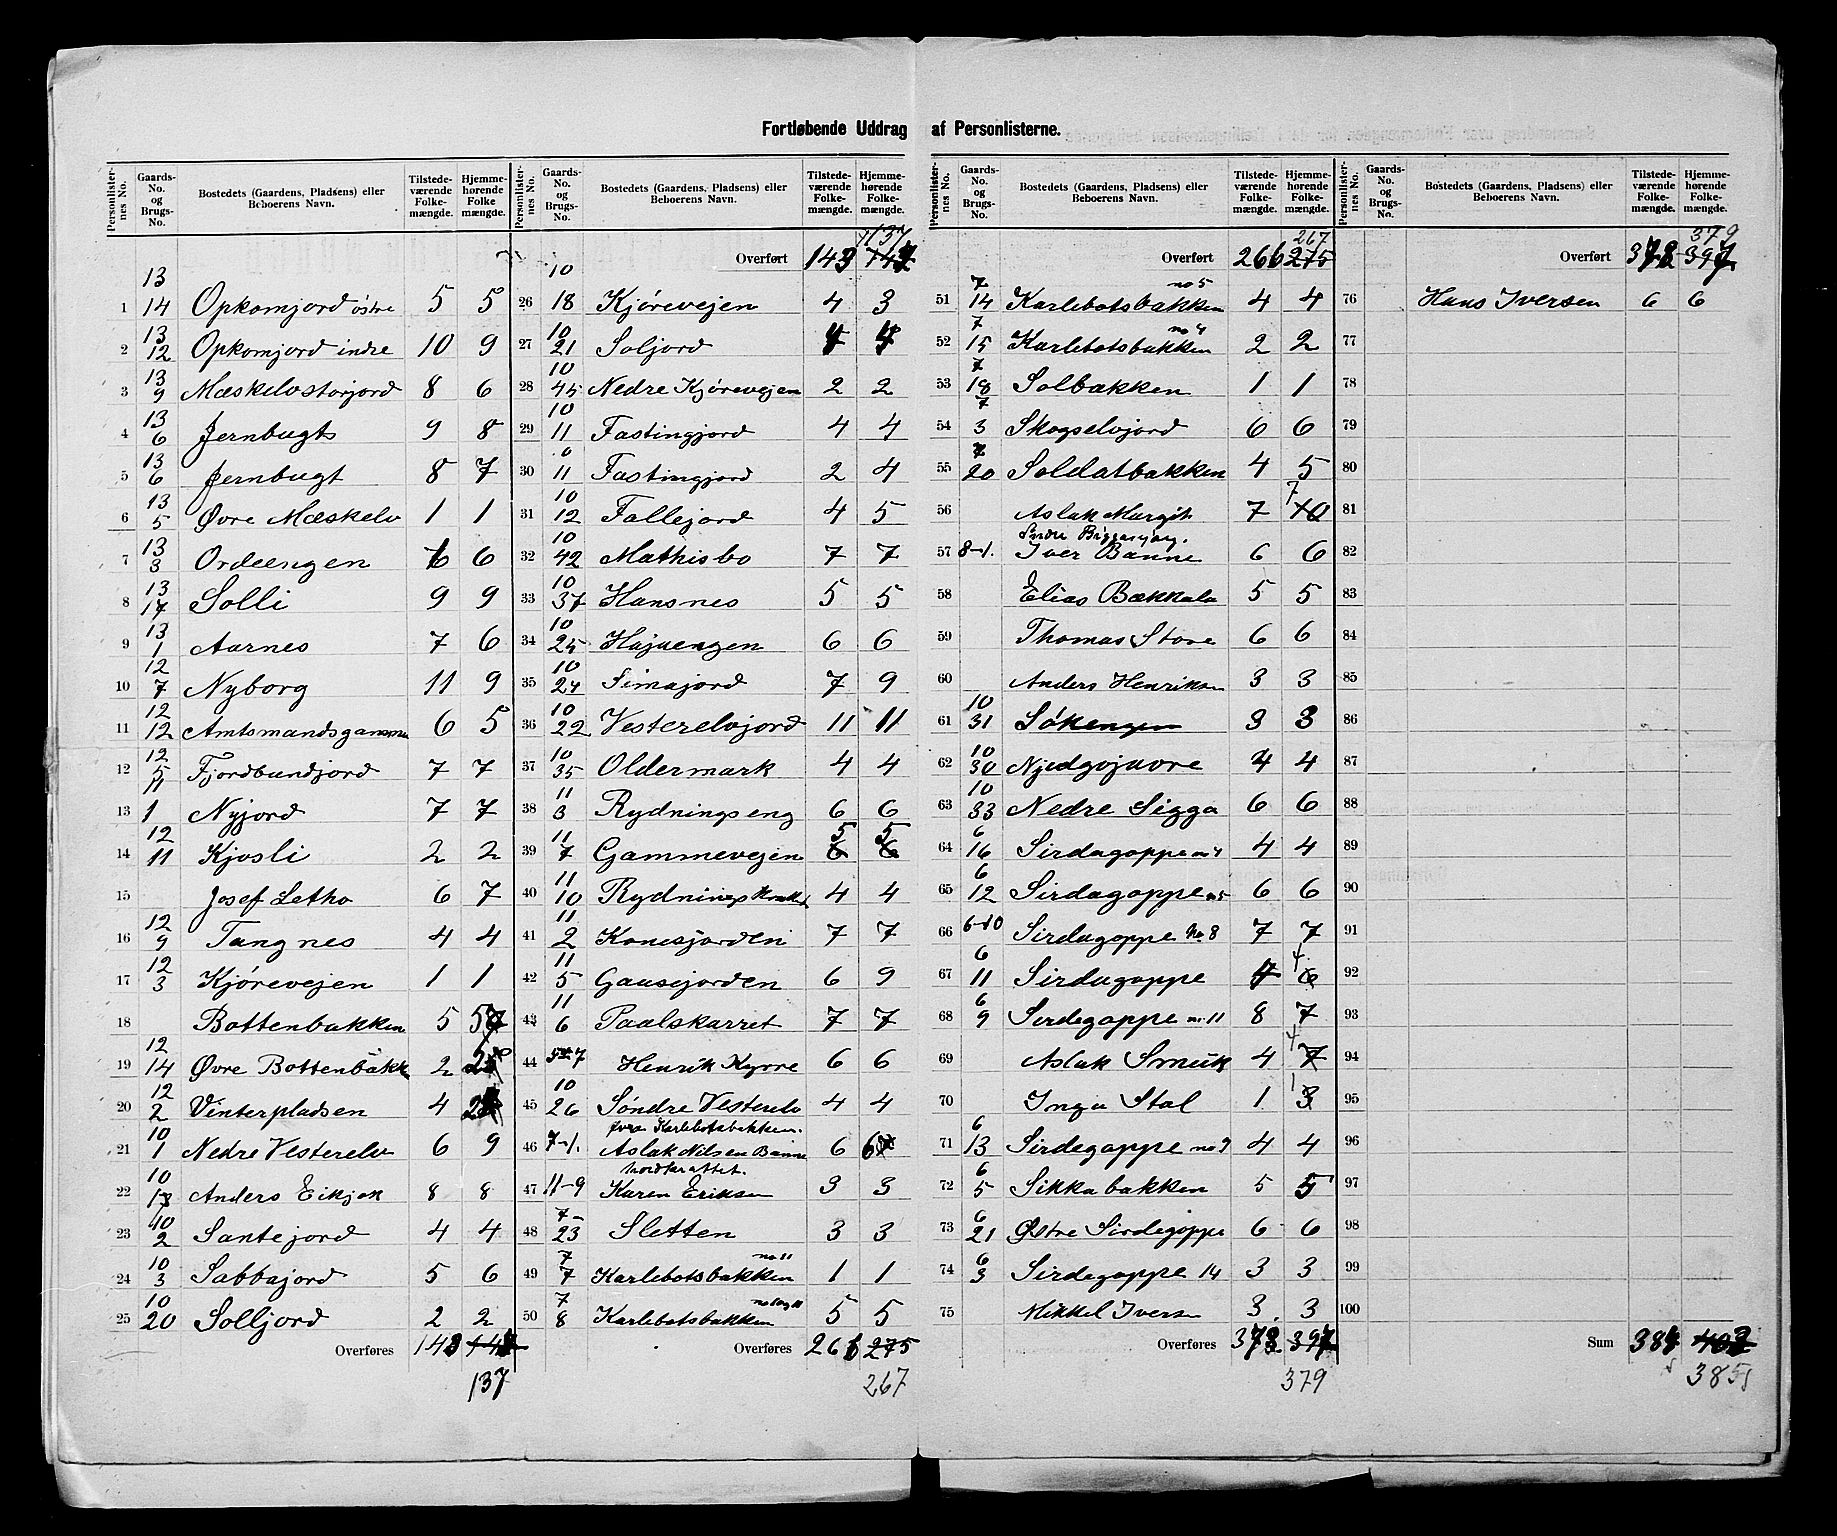 Fortløbende Uddrag af Personlisterne.
Personlister-nes No. | Gaards-No. og Brugs-No. | Bostedets (Gaardens, Pladsens) eller Beboerens Navn. | Tilstede-værende Folke-mængde. | Hjemme-hørende Folke mængde.
1 13/14 Opkomjord østre 5 5
2 13/12 Opkomjord indre 10 9
3 13/9 Mæskelvstorjord 8 6
4 13/6 Jernbugts 9 8
5 13/6 Jernbugt 8 7
6 13/5 Øvre Mæskelv 1 1
7 13/3 Ordeengen 6 6
8 13/17 Solli 9 9
9 13/1 Aarnes 7 6
10 12/7 Nyborg 11 9
11 12/12 Amtsmandsgamme 6 5
12 12/5 Fjordbundjord 7 7
13 11/1 Nyjord 7 7
14 12/11 Kjosli 2 2
15 Josef Letho 6 7
16 12/9 Tangnes 4 4
17 12/3 Kjørevejen 1 1
18 Bottenbakken 5 5
19 12/14 Øvre Bottenbakk 2 2
20 12/2 Vinterpladsen 4 2
21 10/1 Nedre Vesterelv 6 9
22 10/17 Anders Eikjok 8 8
23 10/2 Santejord 4 4
24 10/3 Sabbajord 5 6
25 10/20 Solljord 2 2
Overføres 143 147
137
Personlister-nes No. | Gaards-No. og Brugs-No. | Bostedets (Gaardens, Pladsens) eller Beboerens Navn. | Tilstede-værende Folke-mængde. | Hjemme-hørende Folke-mængde.
137
Overført 143 147
26 10/18 Kjørevejen 4 3
27 10/21 Soljord 4 4
28 10/45 Nedre Kjørevejen 2 2
29 10/11 Fastingjord 4 4
30 0/11 Fastingjord 2 4
31 10/12 Fallejord 4 5
32 10/42 Mathisbo 7 7
33 10/37 Hansnes 5 5
34 10/25 Hajuengen 6 6
35 10/24 Fimajord 7 9
36 10/22 Vesterelvjord 11 11
37 10/35 Oldermark 4 4
38 11/3 Rydningseng 6 6
5 5
39 11/7 Gammevejen 6 6
40 11/10 Rydnings 4 4
41 11/2 Konesjorden 7 7
42 11/5 Gausejorden 6 9
43 11/6 Paalskarret 7 7
44 Henrik Kyrre 6 6
45 10/26 Søndre Vesterelv 4 4
øvre Karlebotsbakken.
46 7-1. Aslak Nilsen Banne 6 6
47 11-9 Karen Eriksen 3 3
48 7/23 Sletten 3 3
no 11
49 7/7 Karlebotsbakken 1 1
50 7/8 Karlebotsbakken 5 5
Overføres 266 275
267
Personlister-nes No. | Gaards-No. og Brugs-No. | Bostedets (Gaardens, Pladsens) eller Beboerens Navn. | Tilstede-værende Folke-mængde. | Hjemme-hørende Folke-mængde.
267
Overført 266 275
no 5
51 7/14 Karlebotsbakken 4 4
no 4
52 7/15 Karlebotsbakken 2 2
53 7/18 Solbakken 1 1
54 7/3 Skogselvjord 6 6
55 7/20 Soldatbakken 4 5
7
56 Aslak Margit 7 10
57 8-1. Iver Banne 6 6
58 Elias Bækkala 5 5
59 Thomas Store 6 6
60 Anders Henriksen 3 3
61 10/31 Søkengen 3 3
62 10/30 Njedgojuvre 4 4
63 10/33 Nedre Sigga 6 6
64 6/16 Sirdagoppe no 4 4 4
65 6/12 Sirdagoppe no 5 6 6
66 6-10 Sirdagoppe No. 8 7 7
4
67 6/11 Sirdagoppe 4 6
68 6/9 Sirdegoppe no 11 8 7
4
69 Aslak Smuk 4 7
1
70 Inga Stal 1 3
71 6/13 Sirdegoppe no 9 4 4
72 6/5 Sikkabakken 5 5
73 6/21 Østre Sirdegoppe 6 6
74 6/3 Sirdegoppe 14 3 3
75 Mikkel Ivers 3 3
Overføres 378 397
379
Personlister-nes No. | Gaards-No. og Brugs-No. | Bostedets (Gaardens, Pladsens) eller Beboerens Navn. | Tilstede-værende Folke-mængde. | Hjemme-hørende Folke-mængde.
379
Overført 378 397
76 Hans Iversen 6 6
77
78
79
80
81
82
83
84
85
86
87
88
89
90
91
92
93
94
95
96
97
98
99
100
Sum 384 403
385